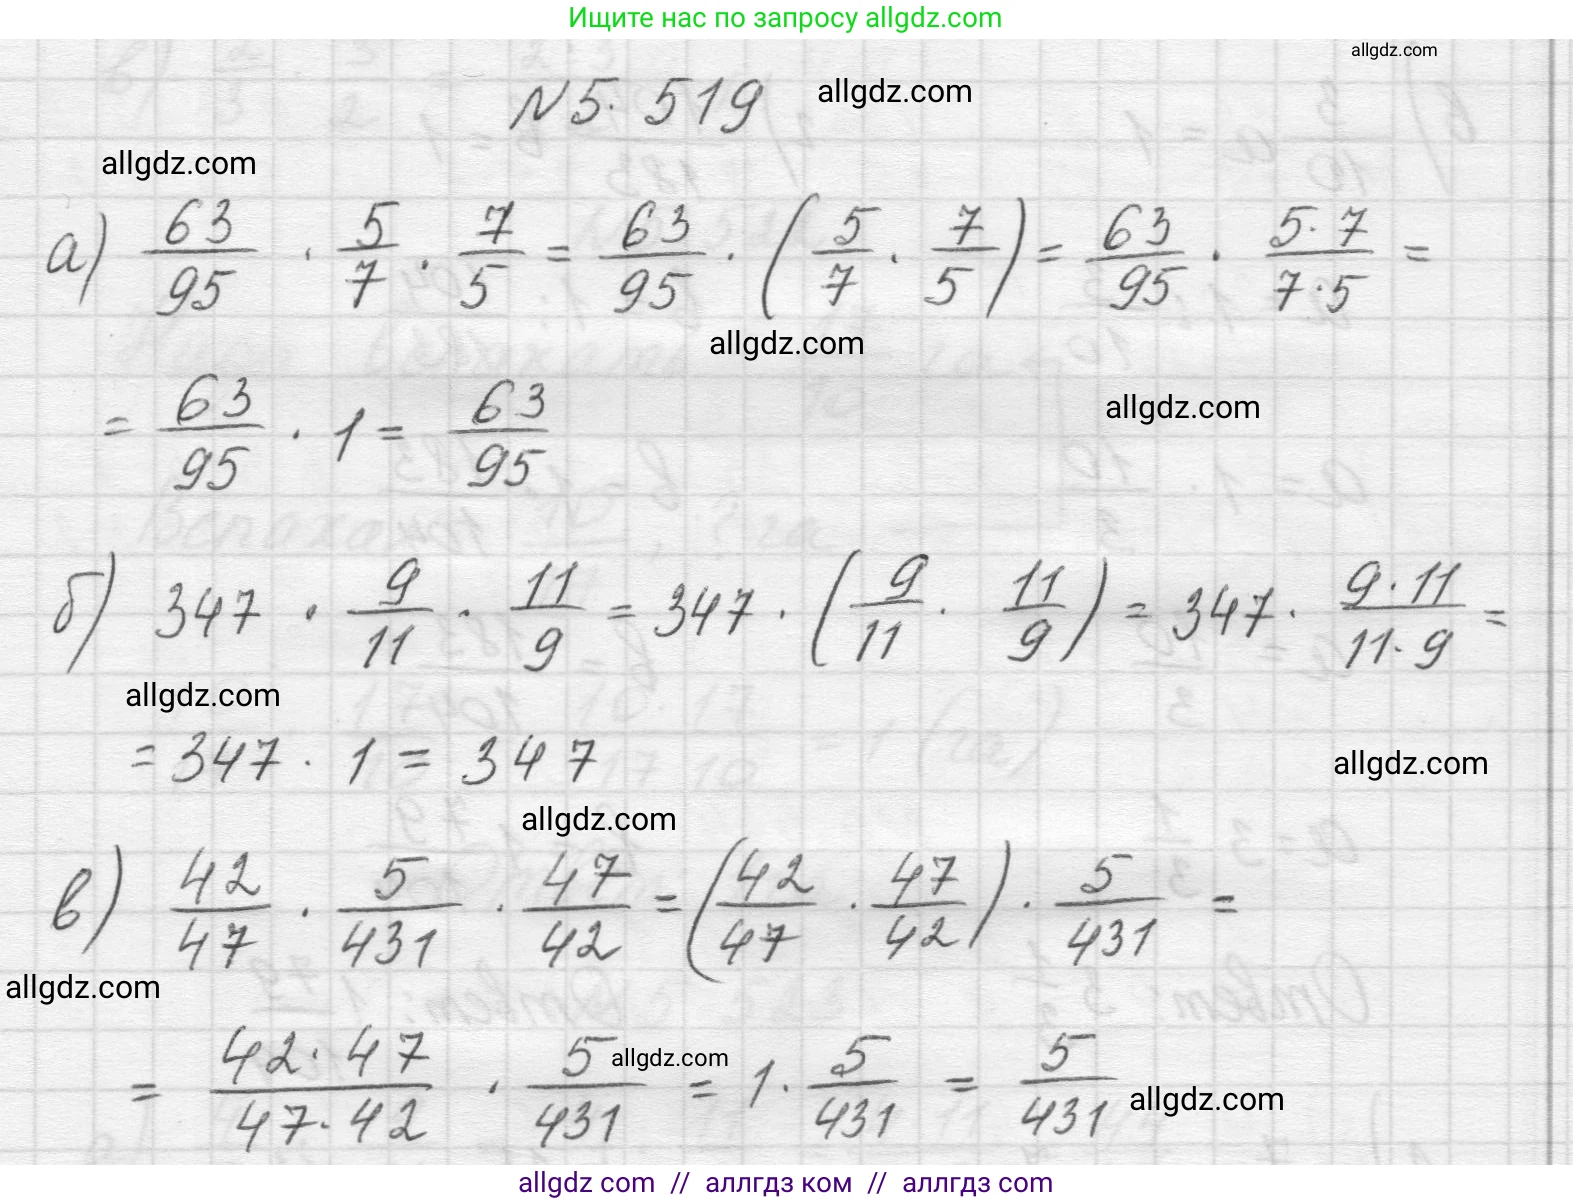 Ищите нас по запросу allgdz.com
allgdz.com
№5.519
allgdz.com
allgdz.com
а) 63/95 · 5/7 · 7/5 = 63/95 · (5/7 · 7/5) = 63/95 · 5·7/7·5 =
allgdz.com
= 63/95 · 1 = 63/95
allgdz.com
б) 347 · 9/11 · 11/9 = 347 · (9/11 · 11/9) = 347 · 9·11/11·9 =
allgdz.com
= 347 · 1 = 347
allgdz.com
allgdz.com
в) 42/47 · 5/431 · 47/42 = (42/47 · 47/42) · 5/431 =
allgdz.com
= 42·47/47·42 · 5/431 = 1 · 5/431 = 5/431
allgdz.com
allgdz.com
allgdz com // аллгдз ком // аллгдз com